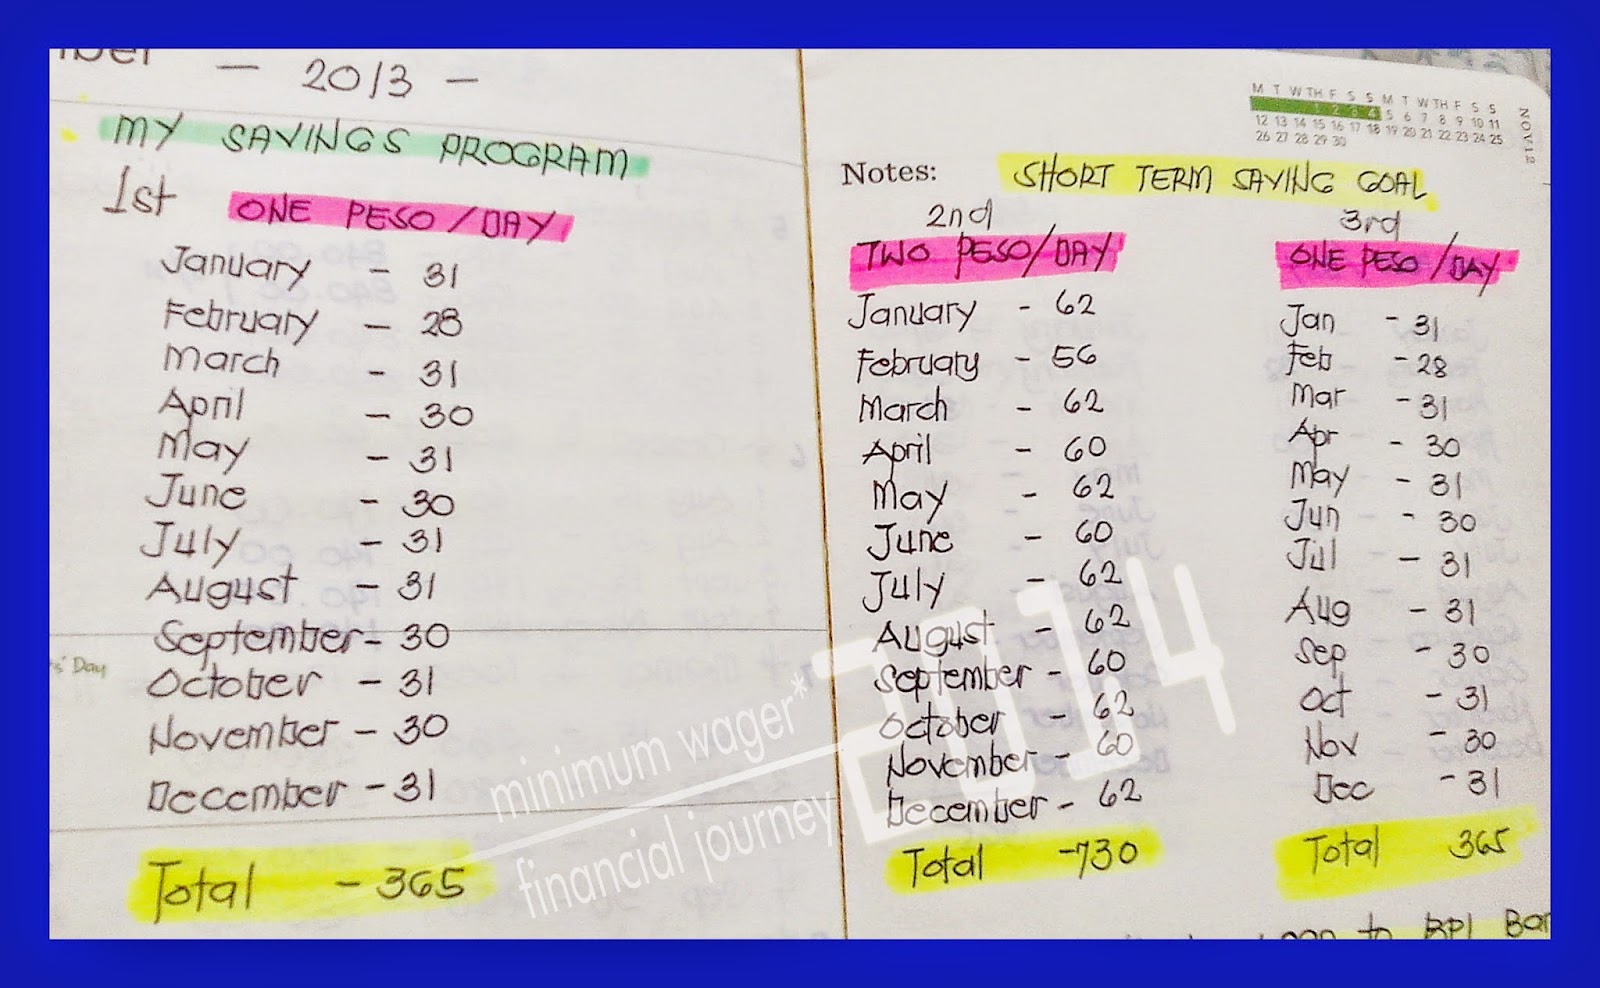 - 2013 -
MY SAVINGS PROGRAM
1st ONE PESO/DAY
January - 31
February - 28
March - 31
April - 30
May - 31
June - 30
July - 31
August - 31
September - 30
October - 31
November - 30
December - 31
Total - 365
s' Day
M T W TH F S S M T W TH F S S
1 2 3 4 5 6 7 8 9 10 11
12 13 14 15 16 17 18 19 20 21 22 23 24 25
26 27 28 29 30
NOV.12
Notes: SHORT TERM SAVING GOAL
2nd
TWO PESO/DAY
January - 62
February - 56
March - 62
April - 60
May - 62
June - 60
July - 62
August - 62
September - 60
October - 62
November - 60
December - 62
Total - 730
3rd
ONE PESO/DAY
Jan - 31
Feb - 28
Mar - 31
Apr - 30
May - 31
Jun - 30
Jul - 31
Aug - 31
Sep - 30
Oct - 31
Nov - 30
Dec - 31
Total 365
to BPI
minimum wager*
financial journey
2014